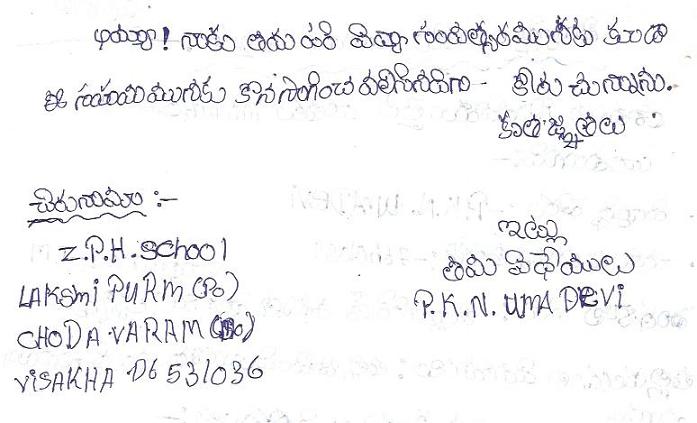 అయ్యా! నాకు తరు పరి విద్యా సంవత్సరమునకు కూడా
ఈ సహాయమునకు కొనసాగించ వలసినదిగా - కోరు చున్నాను.
కృతజ్ఞతలు
చిరునామా :-
Z.P.H. School
LAKSMI PURM (Po)
CHODAVARAM
VISAKHA D6 531036
ఇట్లు
తమ విధేయులు
P.K.N. UMA DEVI